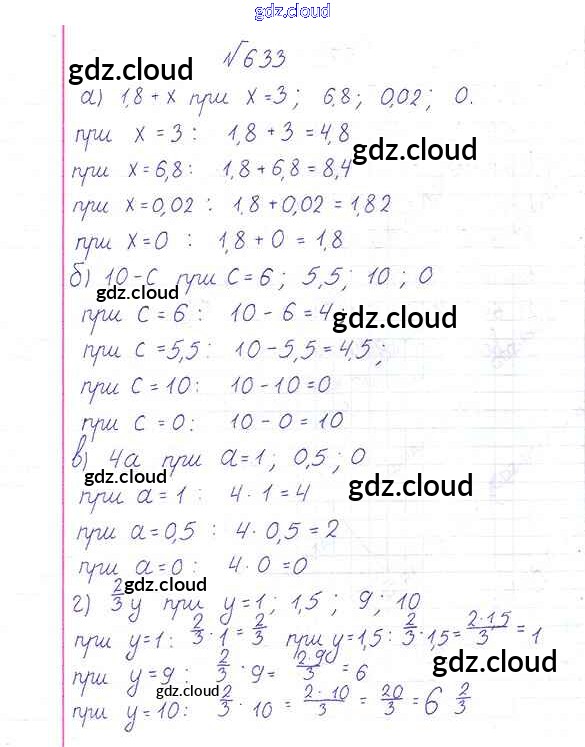 gdz.cloud
№633
gdz.cloud
а) 1,8 + x при x = 3; 6,8; 0,02; 0.
при x = 3: 1,8 + 3 = 4,8
gdz.cloud
при x = 6,8: 1,8 + 6,8 = 8,4
при x = 0,02: 1,8 + 0,02 = 1,82
при x = 0: 1,8 + 0 = 1,8
б) 10 - с при с = 6; 5,5; 10; 0
gdz.cloud
при с = 6: 10 - 6 = 4;
gdz.cloud
при с = 5,5: 10 - 5,5 = 4,5;
при с = 10: 10 - 10 = 0
при с = 0: 10 - 0 = 10
в) 4a при a = 1; 0,5; 0
при a = 1: 4 · 1 = 4
gdz.cloud
при a = 0,5: 4 · 0,5 = 2
при a = 0: 4 · 0 = 0
gdz.cloud
г) 2/3 y при y = 1; 1,5; 9; 10
при y = 1: 2/3 · 1 = 2/3 при y = 1,5: 2/3 · 1,5 = 2·1,5/3 = 1
gdz.cloud
при y = 9: 2/3 · 9 = 2·9/3 = 6
gdz.cloud
при y = 10: 2/3 · 10 = 2·10/3 = 20/3 = 6 2/3